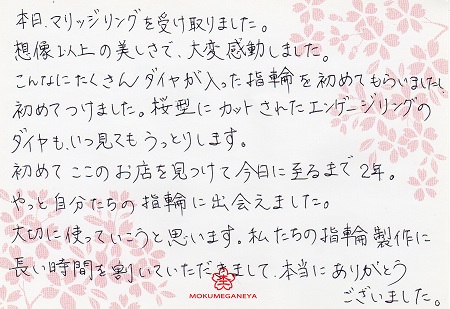 本日、マリッジリングを受け取りました。
想像以上の美しさで、大変感動しました。
こんなにたくさんダイヤが入った指輪を初めてもらいましたし
初めてつけました。桜型にカットされたエンゲージリングの
ダイヤも、いつ見てもうっとりします。
初めてここのお店を見つけて今日に至るまで2年。
やっと自分たちの指輪に出会えました。
大切に使っていこうと思います。私たちの指輪製作に
長い時間を割いていただきまして、本当にありがとう
ございました。
MOKUMEGANEYA